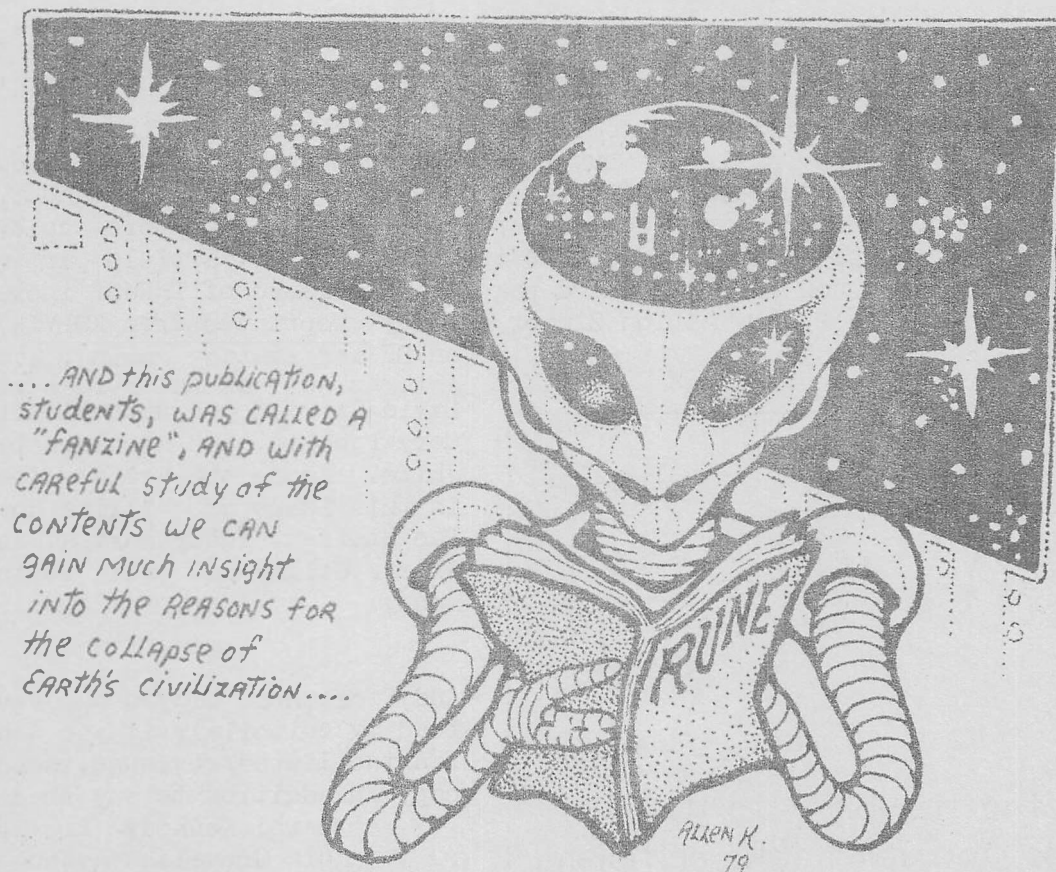 .... AND this publication,
students, WAS CALLED A
"FANZINE", AND with
CAREful study of the
CONTENTS WE CAN
GAIN Much INSIGHT
INTO the REASONS foR
the collapse of
EARTH'S CIVILIZATION....
RUNE
ALLEN K.
79